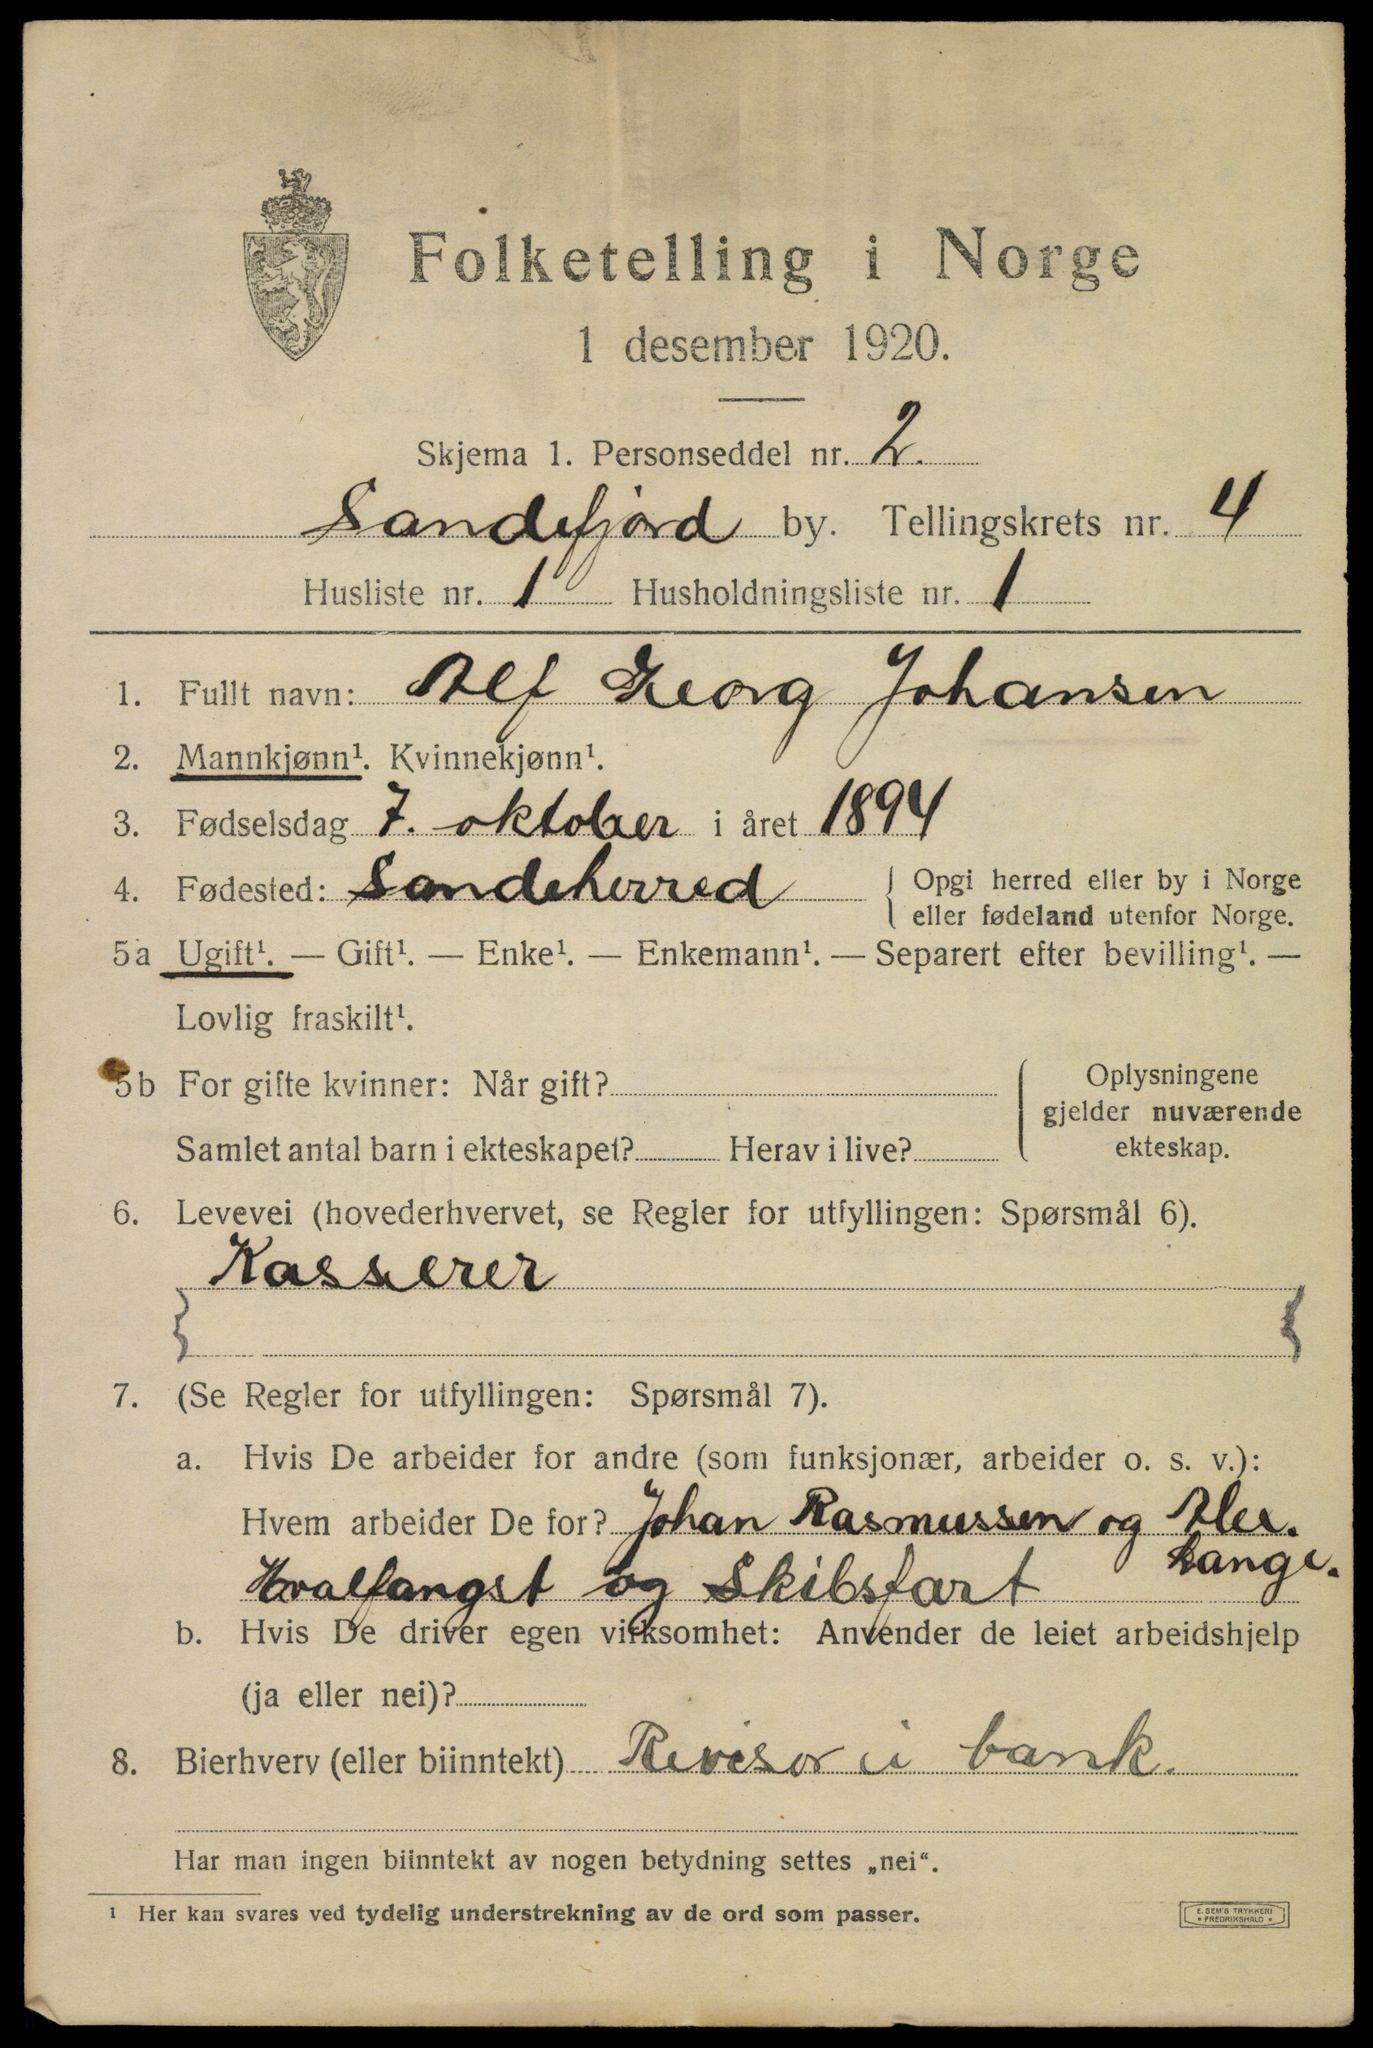 Folketelling i Norge
1 desember 1920.
Skjema 1. Personseddel nr. 2.
Sandefjord by. Tellingskrets nr. 4
Husliste nr. 1 Husholdningsliste nr. 1
1. Fullt navn: Alf Georg Johansen
2. Mannkjønn¹. Kvinnekjønn¹.
3. Fødselsdag 7. oktober i året 1894
4. Fødested: Sandeherred { Opgi herred eller by i Norge
eller fødeland utenfor Norge.
5a Ugift¹. — Gift¹. — Enke¹. — Enkemann¹. — Separert efter bevilling¹. —
Lovlig fraskilt¹.
5b For gifte kvinner: Når gift? { Oplysningene
gjelder nuværende
Samlet antal barn i ekteskapet? Herav i live? ekteskap.
6. Levevei (hovederhvervet, se Regler for utfyllingen: Spørsmål 6).
Kasserer
7. (Se Regler for utfyllingen: Spørsmål 7).
a. Hvis De arbeider for andre (som funksjonær, arbeider o. s. v.):
Hvem arbeider De for? Johan Rasmussen og Alex.
Lange.
Hvalfangst og Skibsfart
b. Hvis De driver egen virksomhet: Anvender de leiet arbeidshjelp
(ja eller nei)?
8. Bierhverv (eller biinntekt) Revisor i bank.
Har man ingen biinntekt av nogen betydning settes „nei“.
¹ Her kan svares ved tydelig understrekning av de ord som passer.
E. SEM'S TRYKKERI
* FREDRIKSHALD *